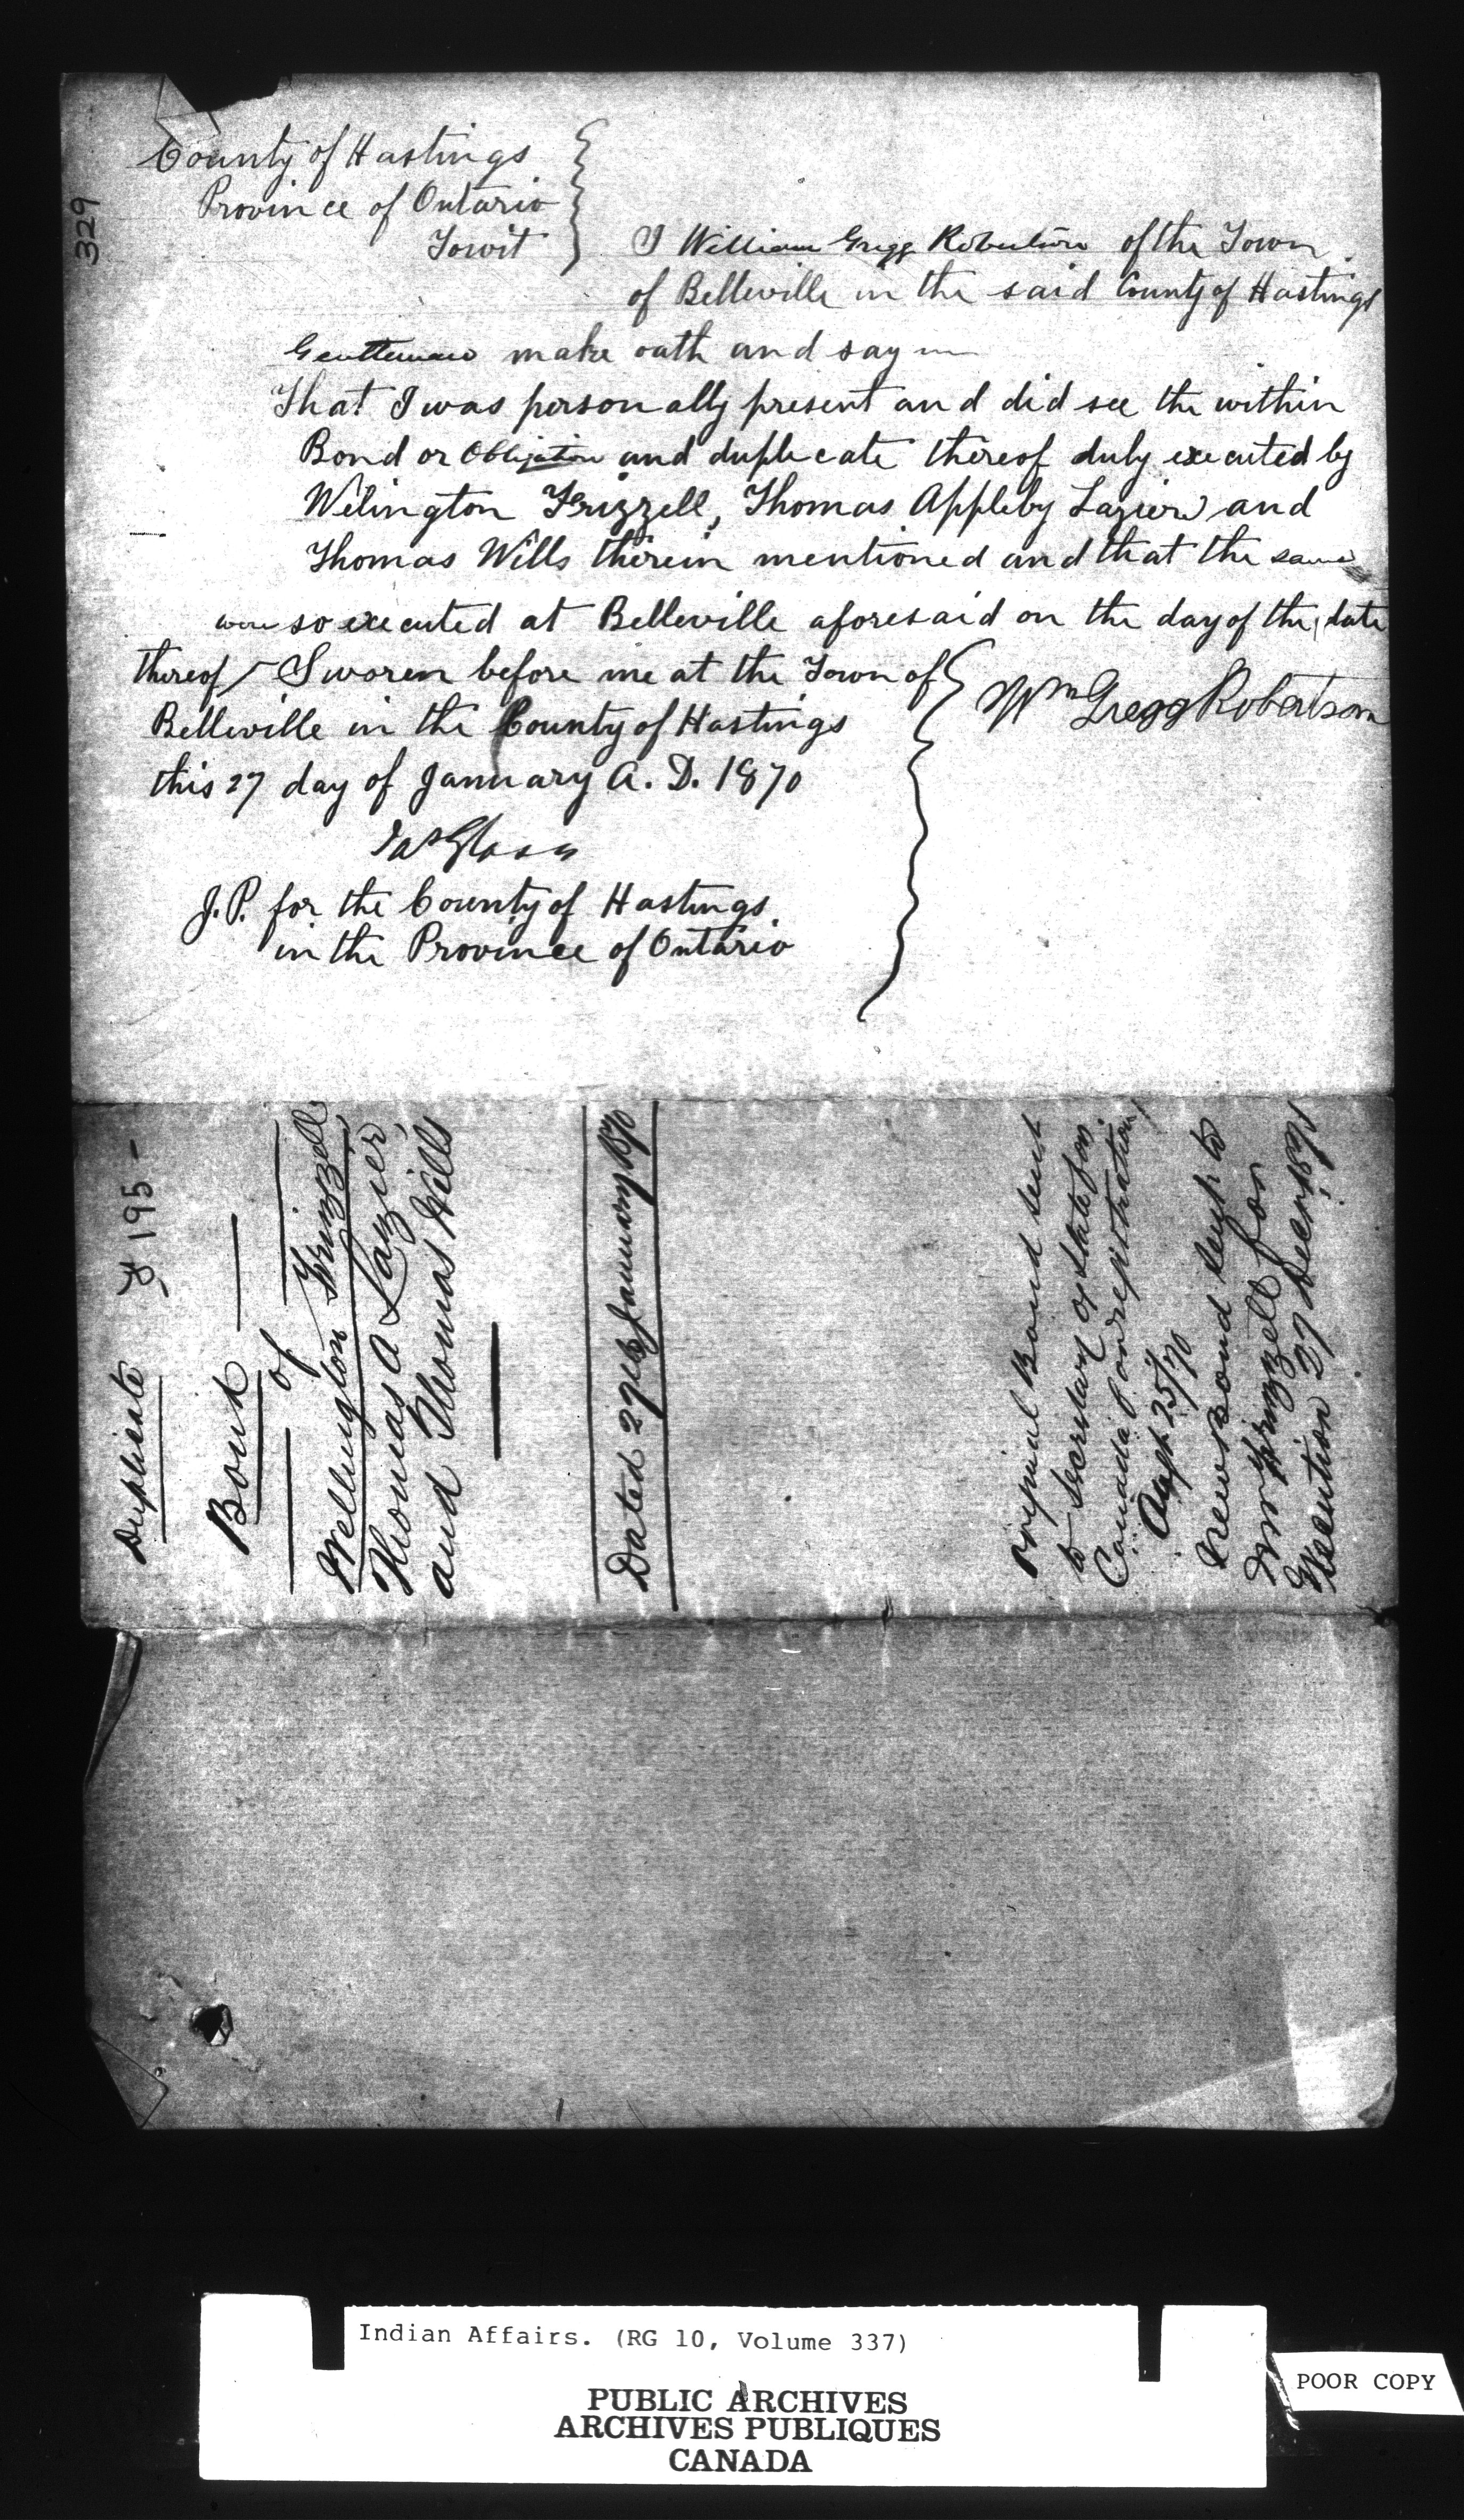 329
County of Hastings
Province of Ontario
Towit
I William Gregg Robertson of the Town
of Belleville in the said County of Hastings
Gentleman make oath and say
That I was personally present and did see the within
Bond or Obligation and duplicate thereof duly executed by
Wilington Frizzell, Thomas Appleby Lazier and
Thomas Wills therein mentioned and that the same
were so executed at Belleville aforesaid on the day of the date
thereof / Sworen before me at the Town of
Belleville in the County of Hastings
this 27 day of January A. D. 1870
Wm Gregg Robertson
Jas Glass
J.P. for the County of Hastings
in the Province of Ontario
Duplicate
195-
Bond
of
Wellington Frizzell,
Thomas A Lazier,
and Thomas Wills
Dated 27th January 1870
Original Bond sent
to Secretary of State for
Canada for registration
Augt 25/70
New Bond sent to
Frizzell for
Execution 27 Decr. 1870
Indian Affairs. (RG 10, Volume 337)
PUBLIC ARCHIVES
ARCHIVES PUBLIQUES
CANADA
POOR COPY